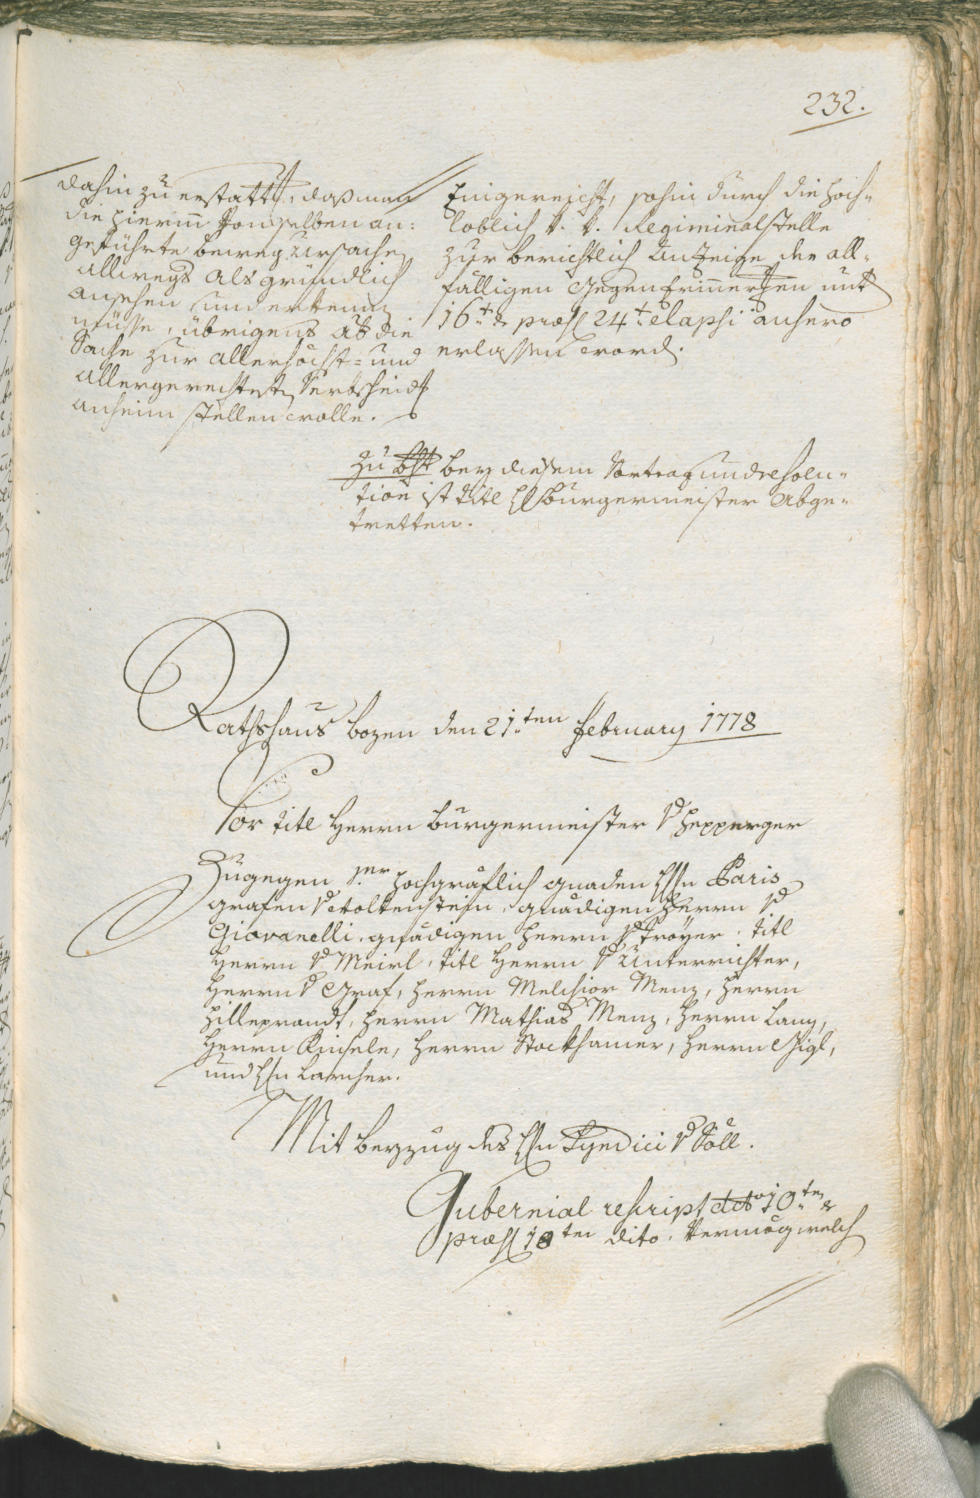 232.
dahin zu erstatten, daß man
die hierinn von selben an:
geführte beweg Ursachen
allwegs als gründlich
ansehen und erkennen
müsse, übrigens ab die
Sache zur allerhöchst- und
allergerechtesten Entscheidung
anheim stellen wolle.
Eingereicht, sohin durch die hoch-
loblich k. k. Regiminalstelle
zur berichtlich Anzeige der all-
fälligen Gegen Erinnerungen mit
16t & præs 24t elapsi anhero
erlassen word.
Zu bey diesem Vortrag und resolu-
tion ist titl H Burgermeister Abge-
tretten.
Rathshaus Bozen den 21ten February 1778
Vor titl Herrn Burgermeister v Hepperger
Zugegen Sr hochgräflich gnaden Hn Paris
grafen v Wolkenstein, gnädigen Herrn v
Giovanelli, gnädigen Herrn v Troyer, titl
Herrn v Meirl, titl Herrn v Unterrichter,
Herrn v Graf, Herrn Melchior Menz, Herrn
Hilleprandt, Herrn Mathias Menz, Herrn Lang,
Herrn Kinsele, Herrn Stockhamer, Herrn Gigl,
und Hn Larcher.
Mit beyzug des Hn Syndici v Söll.
Gubernial rescript ddo 10ten &
præs 18ten dito, Vermög welch